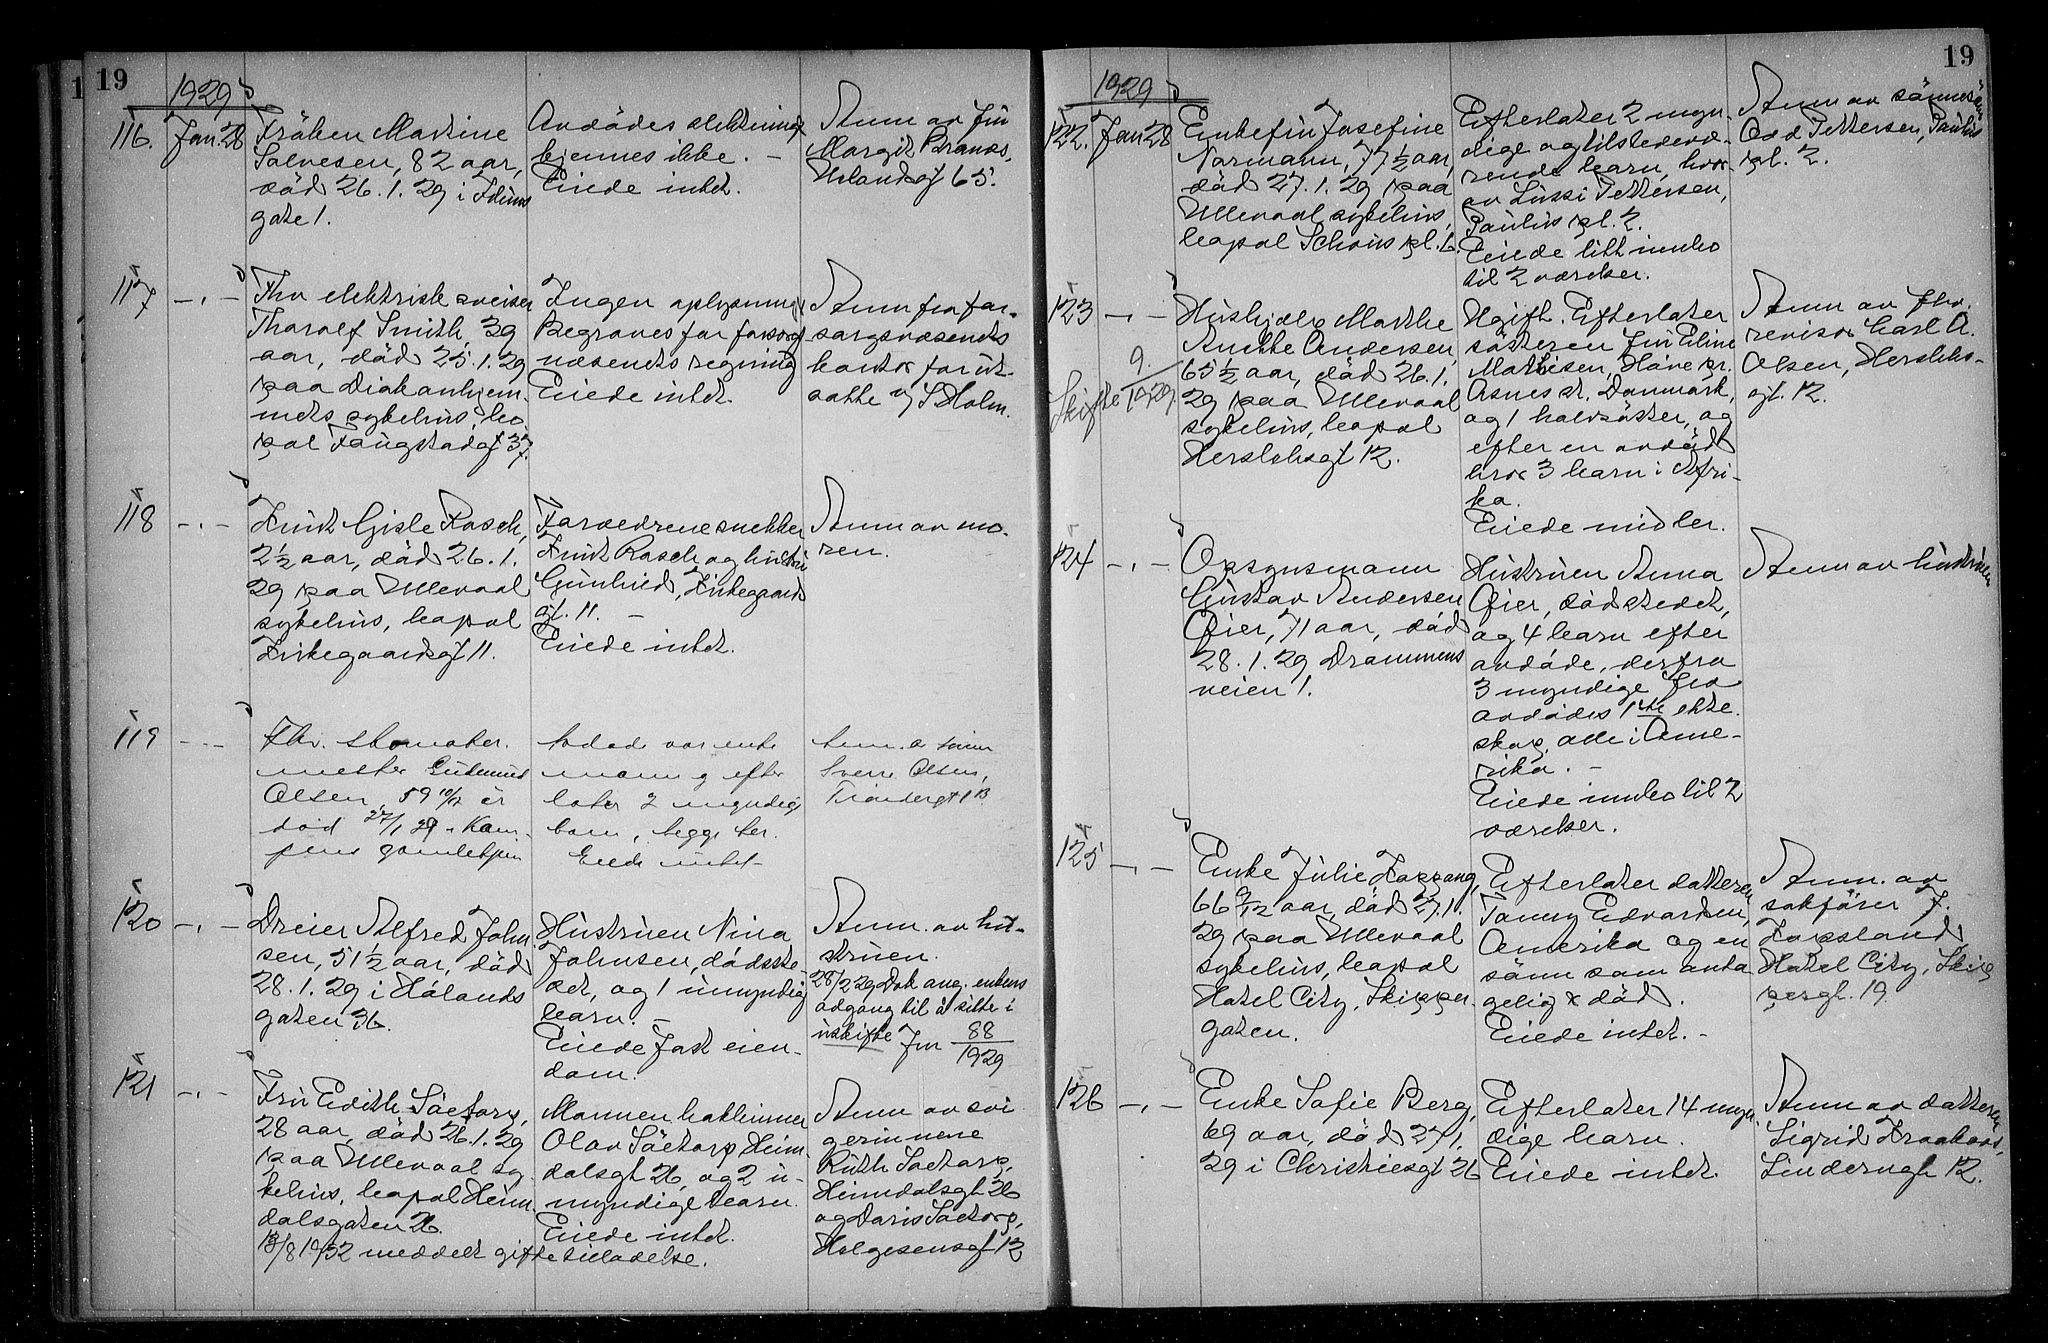 19
1929
116. Jan. 28
Frøken Martine
Salvesen, 82 aar,
død 26.1.29 i Iduns
gate 1.
Avdødes slektninger
kjennes ikke. -
Eiede intet.
Anm av fru
Margit Brands,
Uelandsgt 65.
117 - " -
Fhv elektrisk sveiser
Tharalf Smith, 39
aar, død 25.1.29
paa Diakonhjem-
mets sykehus, bo
pæl Faugstadgt 37.
Ingen oplysninger
Begraves for forsorg
væsenets regning
Eiede intet.
Anm fra for-
sorgsvæsenets
kontor for ut-
satte v/ S Holm.
118 - " -
Knut Gisle Rasch,
2 1/2 aar, død 26.1.
29 paa Ullevaal
sykehus, bopæl
Kirkegaardsgt 11.
Forældrene snekker
Knut Rasch og hustru
Gunhild, Kirkegaards
gt. 11. -
Eiede intet.
Anm av mo-
ren.
119 - " -
Fhv. skomaker-
mester Gudmund
Olsen, 59 10/12 år
død 27/1 29 i Kam-
pens gamlehjem
Avdøde var enke
mann og efter
later 2 myndige
barn, begge her.
Eiede intet -
Anm. a sønn
Sverre Olsen,
120 - " -
Dreier Alfred John
sen, 51 1/2 aar, død
28.1.29 i Hålands
gaten 36.
Hustruen Nina
Johnsen, dødsste-
det, og 1 umyndig
barn. -
Eiede fast eien-
dom.
Anm. av hu-
struen.
28/2 29 Dok ang. enkens
adgang til å sitte i
uskifte Jnr 88/1929
121 - " -
Fru Edith Sætorp,
28 aar, død 26.1.29
paa Ullevaal sy
kehus, bopæl Heim
dalsgaten 26.
13/8 1932 meddelt giftetilladelse.
Mannen
Olav Sætorp Heim
dalsgt 26, og 2 u-
myndige barn.
Eiede intet.
Anm av svi
gerinnene
Ruth Sætorp,
Heimdalsgt 26
og Doris Sætorp,
Helgesensgt 12
19
1929
122. Jan 28
Enkefru Josefine
Normann, 77 1/2 aar,
død 27.1.29 paa
Ullevaal sykehus,
bopæl Schous pl. 6.
Efterlater 2 myn-
dige og tilstedevæ-
rende barn, hvor-
av Lussi Pettersen,
Paulus pl. 2.
Eiede litt innbo
til 2 værelser.
Anm av sønnesøn
Odd Pettersen, Paulus
pl. 2.
123 - " -
Skifte 9/1929
Hushjelp Marthe
Anette Andersen,
65 1/2 aar, død 26.1.
29 paa Ullevaal
sykehus, bopæl
Herslebsgt 12.
Ugift. Efterlater
søsteren fru Eline
Mathisen, Håve pr.
Asnes st. Danmark,
og 1 halvsøster, og
efter en avdød
bror 3 barn i Afri-
ka.
Eiede midler.
Anm av fhv.
revisor Carl A.
Olsen, Herslebs-
gt. 12.
124 - " -
Opsynsmann
Gustav Andersen
Øier, 71 aar, død
28.1.29 Drammens
veien 1.
Hustruen Anna
Øier, dødstedet,
og 4 barn efter
avdøde, derfra
3 myndige fra
avdødes 1ste ekte-
skap, alle i Ame-
rika. -
Eiede innbo til 2
værelser.
Anm av hustruen
125 - " -
Enke Julie Kaxrang,
66 9/12 aar, død 27.1.
29 paa Ullevaal
sykehus, bopæl
Hotel City, Skipper-
gaten.
Efterlater datteren
Fanny Edvardsen,
Amerika og en
sønn som anta
gelig er død.
Eiede intet. -
Anm. av
sakfører J.
Kopsland
Hotel City, Skip
pergt. 19
126 - " -
Enke Sofie Berg,
69 aar, død 27.1.
29 i Christiesgt 26
Efterlater 14 myn-
dige barn.
Eiede intet.
Anm av datteren
Sigrid Kraabøl,
Lindernsgt 12.